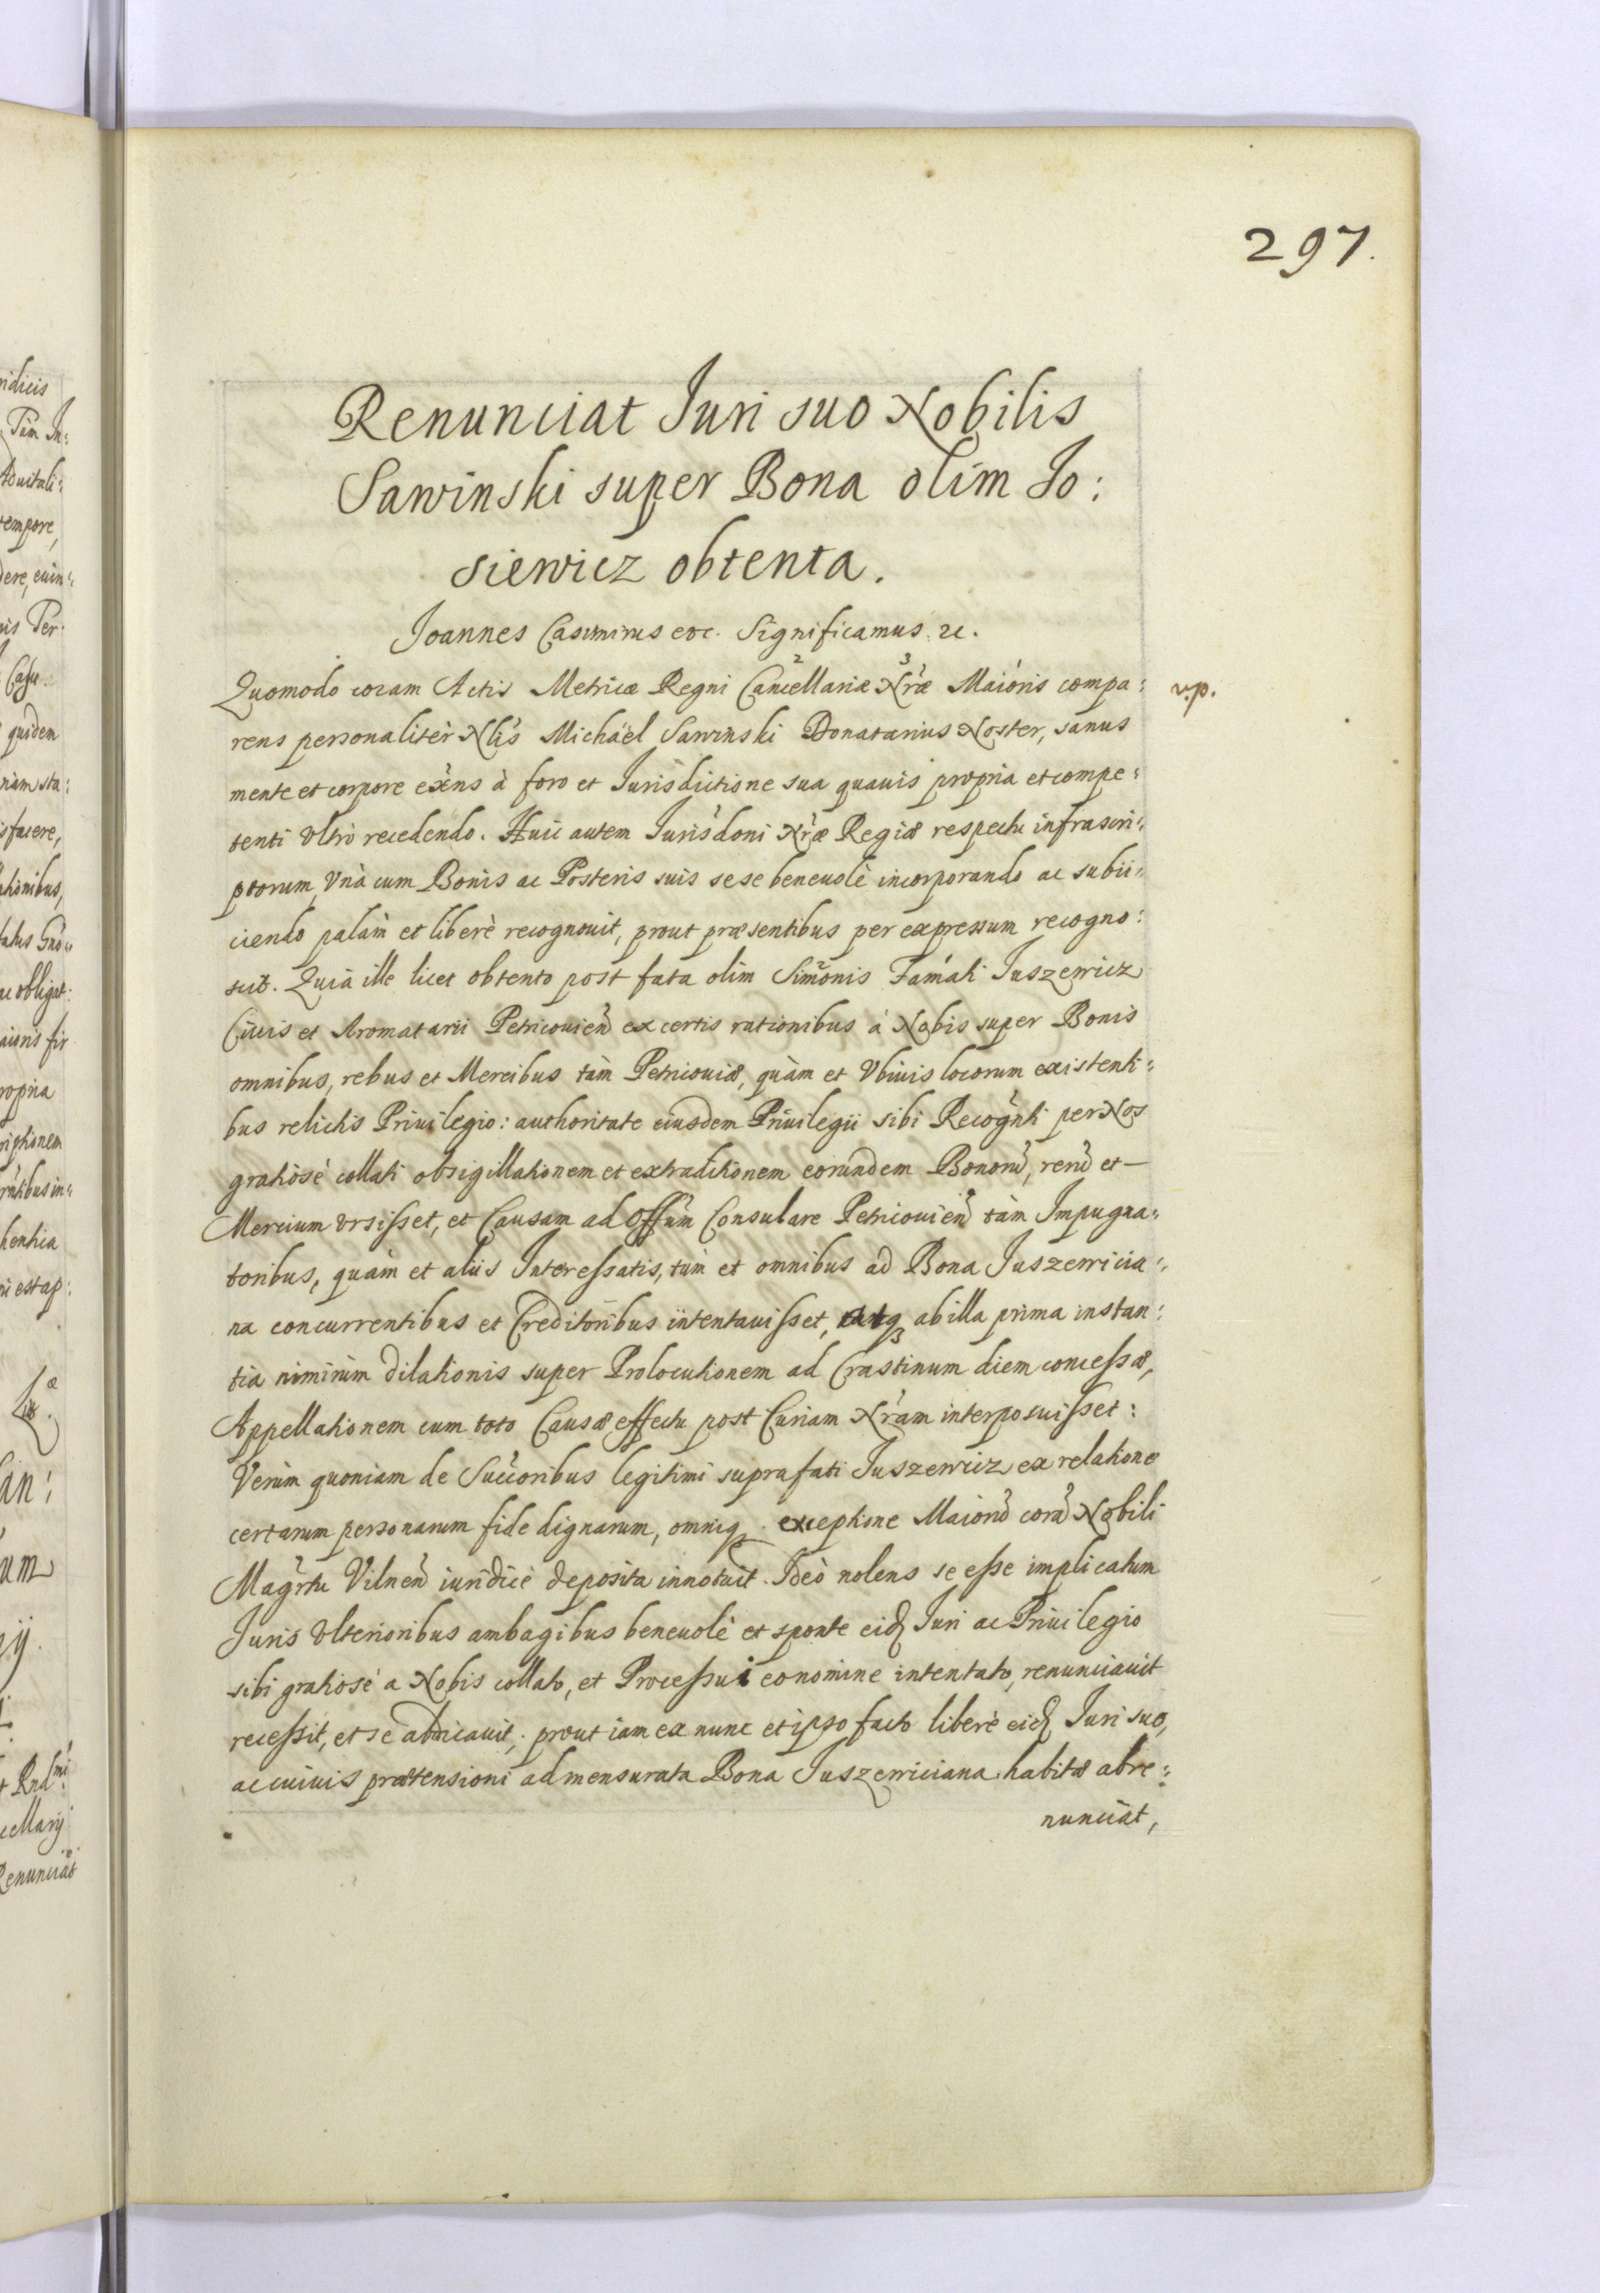 297.
Renunciat Juri suo Nobilis
Sawinski super Bona olim Jo:
siewicz obtenta.
Joannes Casimirus etc. Significamus. etc.
Quomodo coram Actis Metricæ Regni Cancellariæ Nræ Maioris compa: v.p.
rens personalitèr Nlis Michäel Sawinski Donatarius Noster, sanus
mente et corpore exens à foro et Jurisdictione sua quauis propria et compe:
tenti vltrò recedendo. Huic autem Jurisdoni Nræ Regiæ respectu infrascri:
ptorum, Vnà cum Bonis ac Posteris suis sese beneuolè incorporando ac subii:
ciendo palàm et liberè recognouit, prout præsentibus per expressum recogno:
scit. Quia ille licet obtento post fata olim Simonis Famati Juszewicz
Ciuis et Aromatarii Petricouien ex certis rationibus á Nobis super Bonis
omnibus, rebus et Mercibus tàm Petricouiæ, quàm et Vbiuis locorum existenti:
bus relictis Priuilegio: authoritate eiusdem Priuilegii sibi Recognti per Nos
gratiosè collati obsigillationem et extraditionem eorundem Bonorũ, rerũ et —
Mercium vrsisset, et Causam ad Offum Consulare Petricouien tàm Impugna:
toribus, quàm et aliis Interessatis, tùm et omnibus ad Bona Juszewicia:
na concurrentibus et Creditoribus intentauisset, atq ab illa prima instan:
tia nimirùm dilationis super Prolocutionem ad Crastinum diem concessæ,
Appellationem cum toto Causæ effectu post Curiam Nram interposuisset:
Verùm quoniam de Succoribus legitimi suprafati Juszewicz ex relatione
certarum personarum fide dignarum, omniq. exceptione Maiorũ corã Nobili
Magrtu Vilnen iuridicè deposita innotuit. Ideò nolens se esse implicatum
Juris vlterioribus ambagibus beneuolè et sponte eid Juri ac Priuilegio
sibi gratiosè a Nobis collato, et Processui eo nomine intentato, renunciauit
recessit, et sè abdicauit, prout iam ex nunc et ipso facto liberè eid Juri suo,
ac cuiuis prætensioni ad mensurata Bona Juszewiciana habitæ abre:
nunciat,